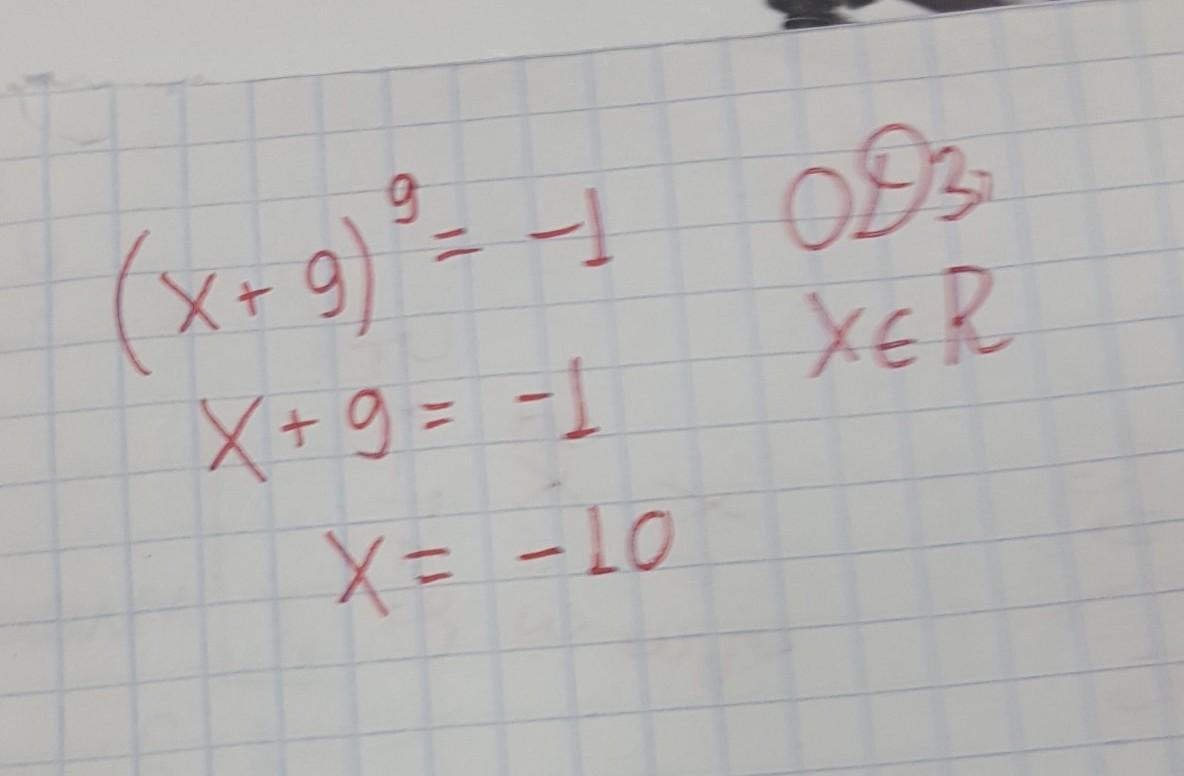 (x+9)⁹ = -1
x+9 = -1
x = -10
ОДЗ:
x∈R